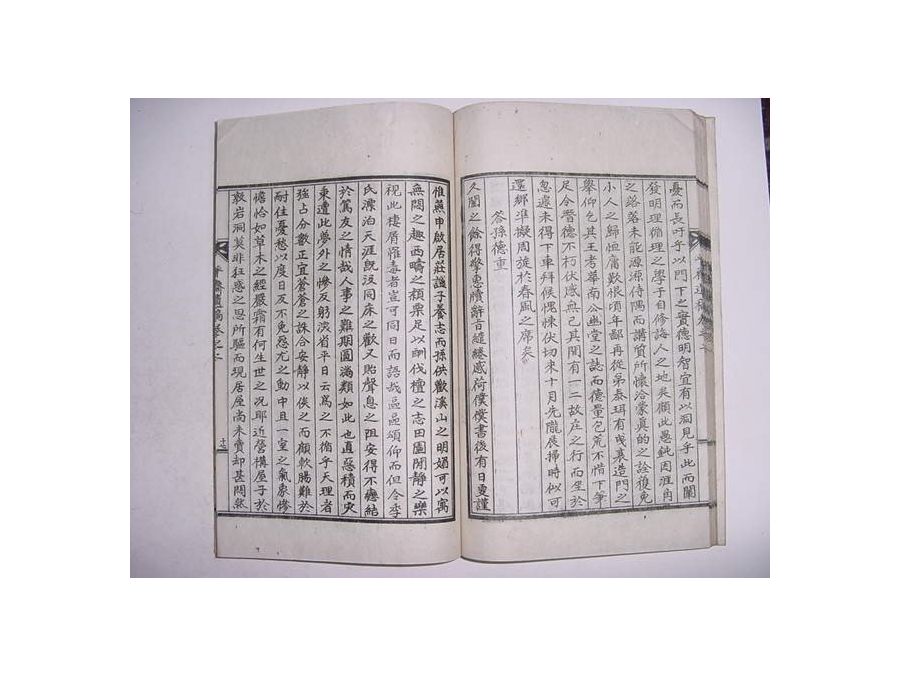 憂而長吁乎以門下之實德明智宜有以洞見乎此而闡
發明理循理之學于自修誨人之地矣顧此愚鈍困涯角
之路落未能源源侍隅而講質所懷洽蒙真的之詮復免
小人之歸恒庸歎恨頃年鄙再從弟泰珥有曵裹造門之
舉仰乞其王考華南公幽堂之誌而德量包荒不惜下筆
足令警德不朽伏感無已其閑有一二故庄之行而坐於
忽遽未得下車拜候愧悚伏切來十月先隴展掃時似可
還鄉準擬周旋於春風之席矣
答孫德重
久閡之餘得擎惠牘辭旨繾綣感荷僕僕書後有日更謹
惟燕申啟居莊謐子養志而孫供歡溪山之明媚可以寓
無悶之趣西疇之積粟足以酬伐檀之志田園閒靜之樂
視此棲屑罹毒者豈可同日而語哉區區頌仰而但令季
氏漂泊天涯旣沒同床之歡又貽聲息之阻安得不纏結
於篤友之情哉人事之難期圓滿類如此也直惡積而灾
東遭此夢外之慘反躬深省平日云爲之不循乎天理者
強占分數正宜蒼蒼之誅合安靜以俟之而顧軟腸難於
耐住憂愁以度日反不免怨尤之動中且一室之氣象慘
憺恰如草木之經嚴霜有何生世之况耶近營構屋子於
敎岩洞莫非狂惑之思所驅而現居屋尚未賣却甚悶然
平齋遺稿卷之二
十二